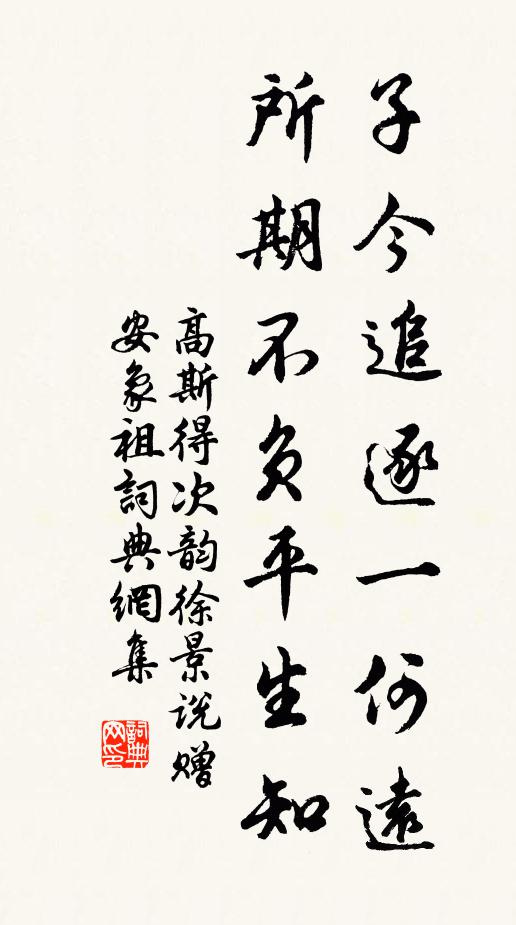 子今追逐一何遠
所期不负平生知
高斯得次韵徐景说赠
安象祖詞典網集
詞典网印